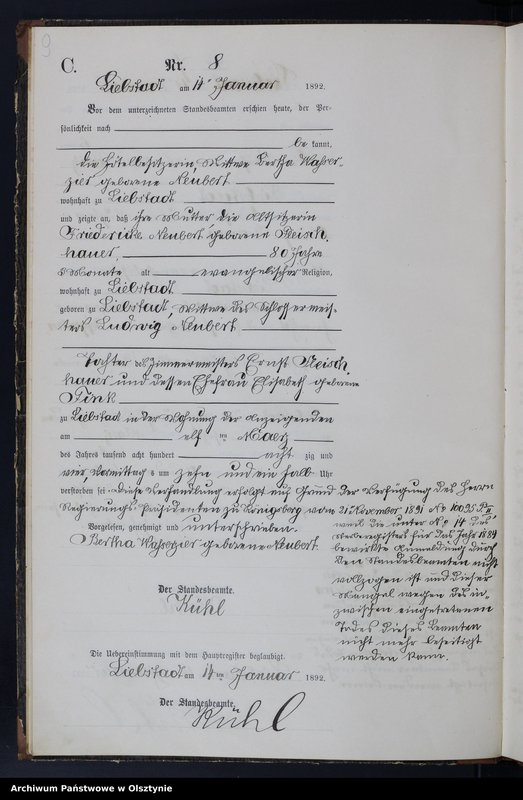 9
C.
Nr. 8
Liebstadt am 14ten Januar 1892.
Vor dem unterzeichneten Standesbeamten erschien heute, der Per-
sönlichkeit nach
be kannt,
die Hôtelbesitzerin Wittwe Bertha
geborene Neubert
wohnhaft zu Liebstadt
und zeigte an, daß ihre Mutter die Altsitzerin
Friederike Neubert geborene Fleisch,
hauer, 80 Jahre
Monate alt evangelischer Religion,
wohnhaft zu Liebstadt
geboren zu Liebstadt, Wittwe des Schlossermeis-
ters Ludwig Neubert
Tochter des Zimmermeisters Ernst Fleisch,
hauer und dessen Ehefrau Elisabeth geborene
Fink
zu Liebstadt in der Wohnung der Anzeigenden
am elf ten Maerz
des Jahres tausend acht hundert acht zig und
vier, Vormittags um zehn und ein halb Uhr
verstorben sei. Diese Verhandlung erfolgt auf Grund der Verfügung des Herrn
Regierungs-Präsidenten zu Königsberg vom 21 November 1891 No 10095
weil die unter No 14 des
Sterberegisters für das Jahr 1884
bewirkte Anmeldung durch
den Standesbeamten nicht
vollzogen ist und dieser
Mangel wegen des in-
zwischen eingetretenen
Todes dieses Beamten
nicht mehr beseitigt
werden kann.
Vorgelesen, genehmigt und unterschrieben.
Bertha geborene Neubert.
Der Standesbeamte.
Kühl
Die Uebereinstimmung mit dem Hauptregister beglaubigt.
Liebstadt am 14ten Januar 1892.
Der Standesbeamte.
Kühl
Archiwum Państwowe w Olsztynie